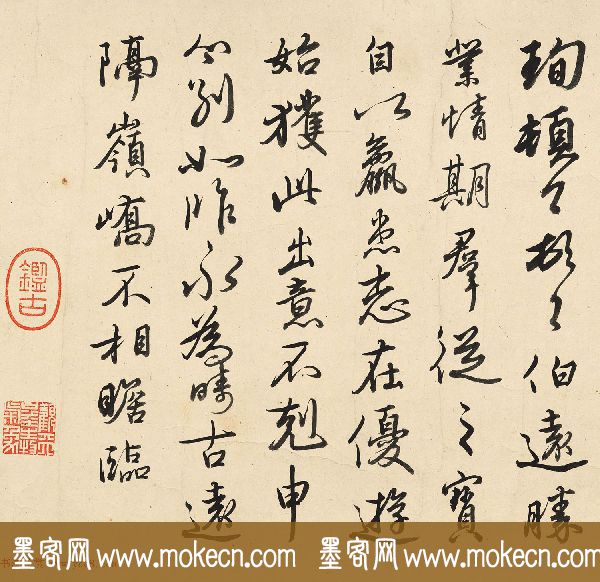 珣頓首頓首伯遠勝
業情期羣從之寶
自以羸患志在優遊
始獲此出意不剋申
分別如昨永為疇古遠
隔嶺嶠不相瞻臨
鑑古
墨客网 www.mokecn.com 墨客网 www.mokecn.com